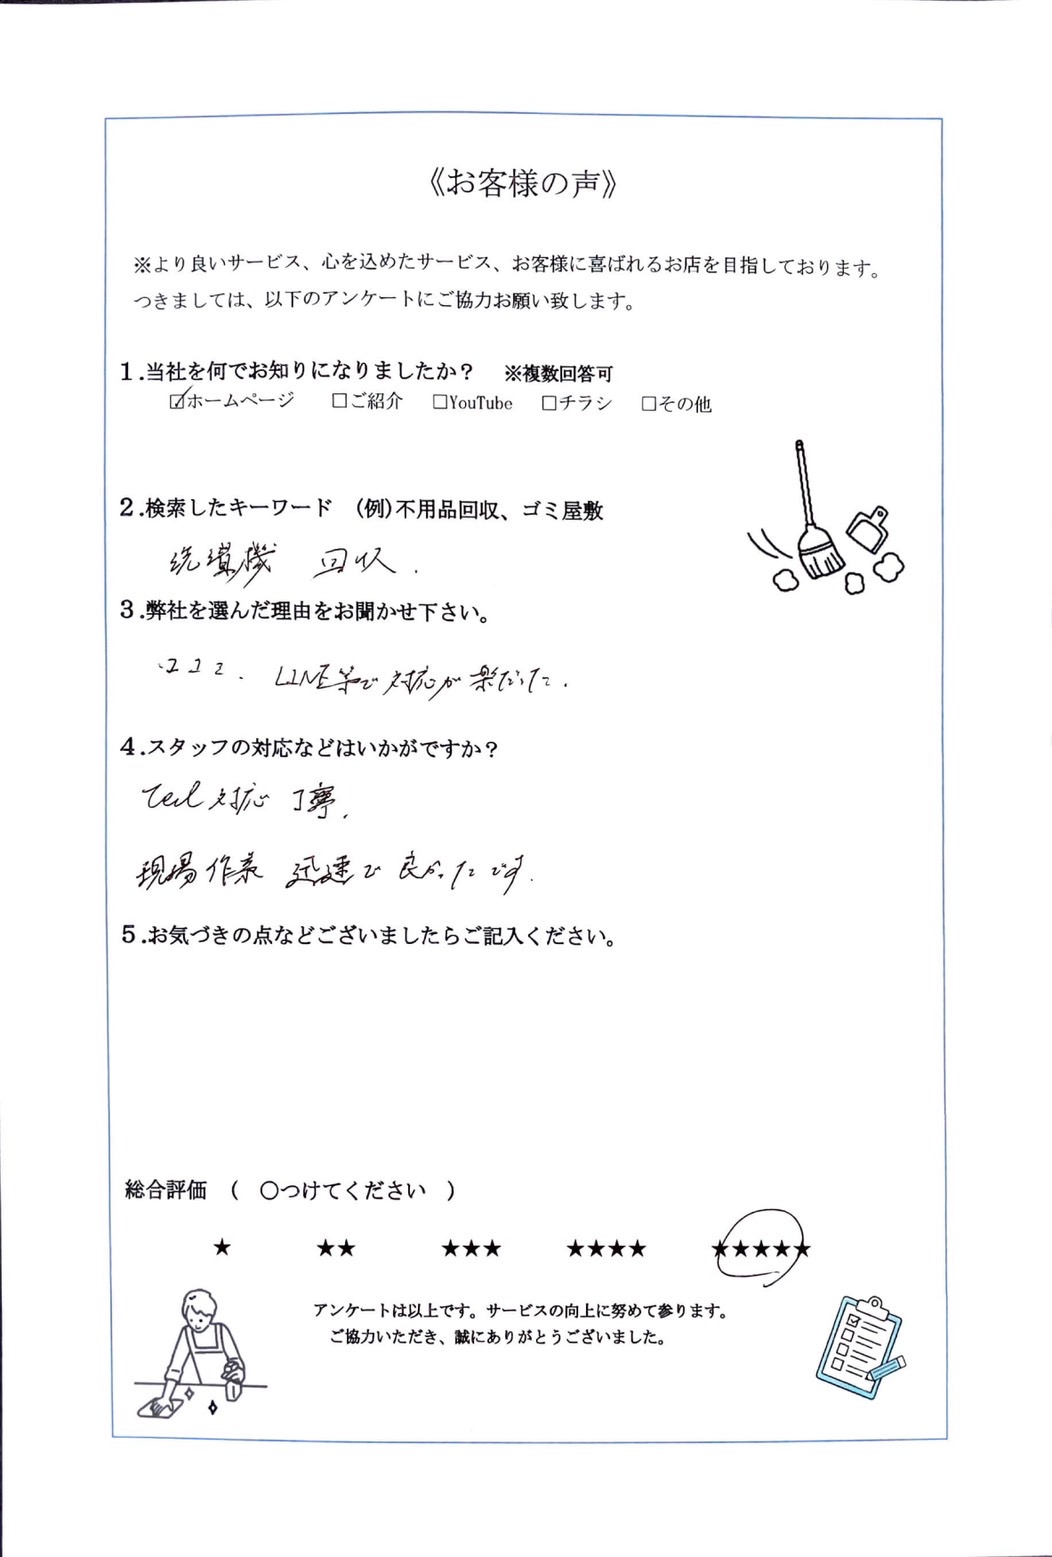 《お客様の声》
※より良いサービス、心を込めたサービス、お客様に喜ばれるお店を目指しております。
つきましては、以下のアンケートにご協力お願い致します。
1.当社を何でお知りになりましたか？　※複数回答可
☑ホームページ　□ご紹介　□YouTube　□チラシ　□その他
2.検索したキーワード　(例)不用品回収、ゴミ屋敷
洗濯機　回収.
3.弊社を選んだ理由をお聞かせ下さい。
LINE等で対応が楽だった.
4.スタッフの対応などはいかがですか？
Tel対応 丁寧.
現場作業 迅速で良かったです.
5.お気づきの点などございましたらご記入ください。
総合評価　(　○つけてください　)
★　★★　★★★　★★★★　★★★★★
アンケートは以上です。サービスの向上に努めて参ります。
ご協力いただき、誠にありがとうございました。